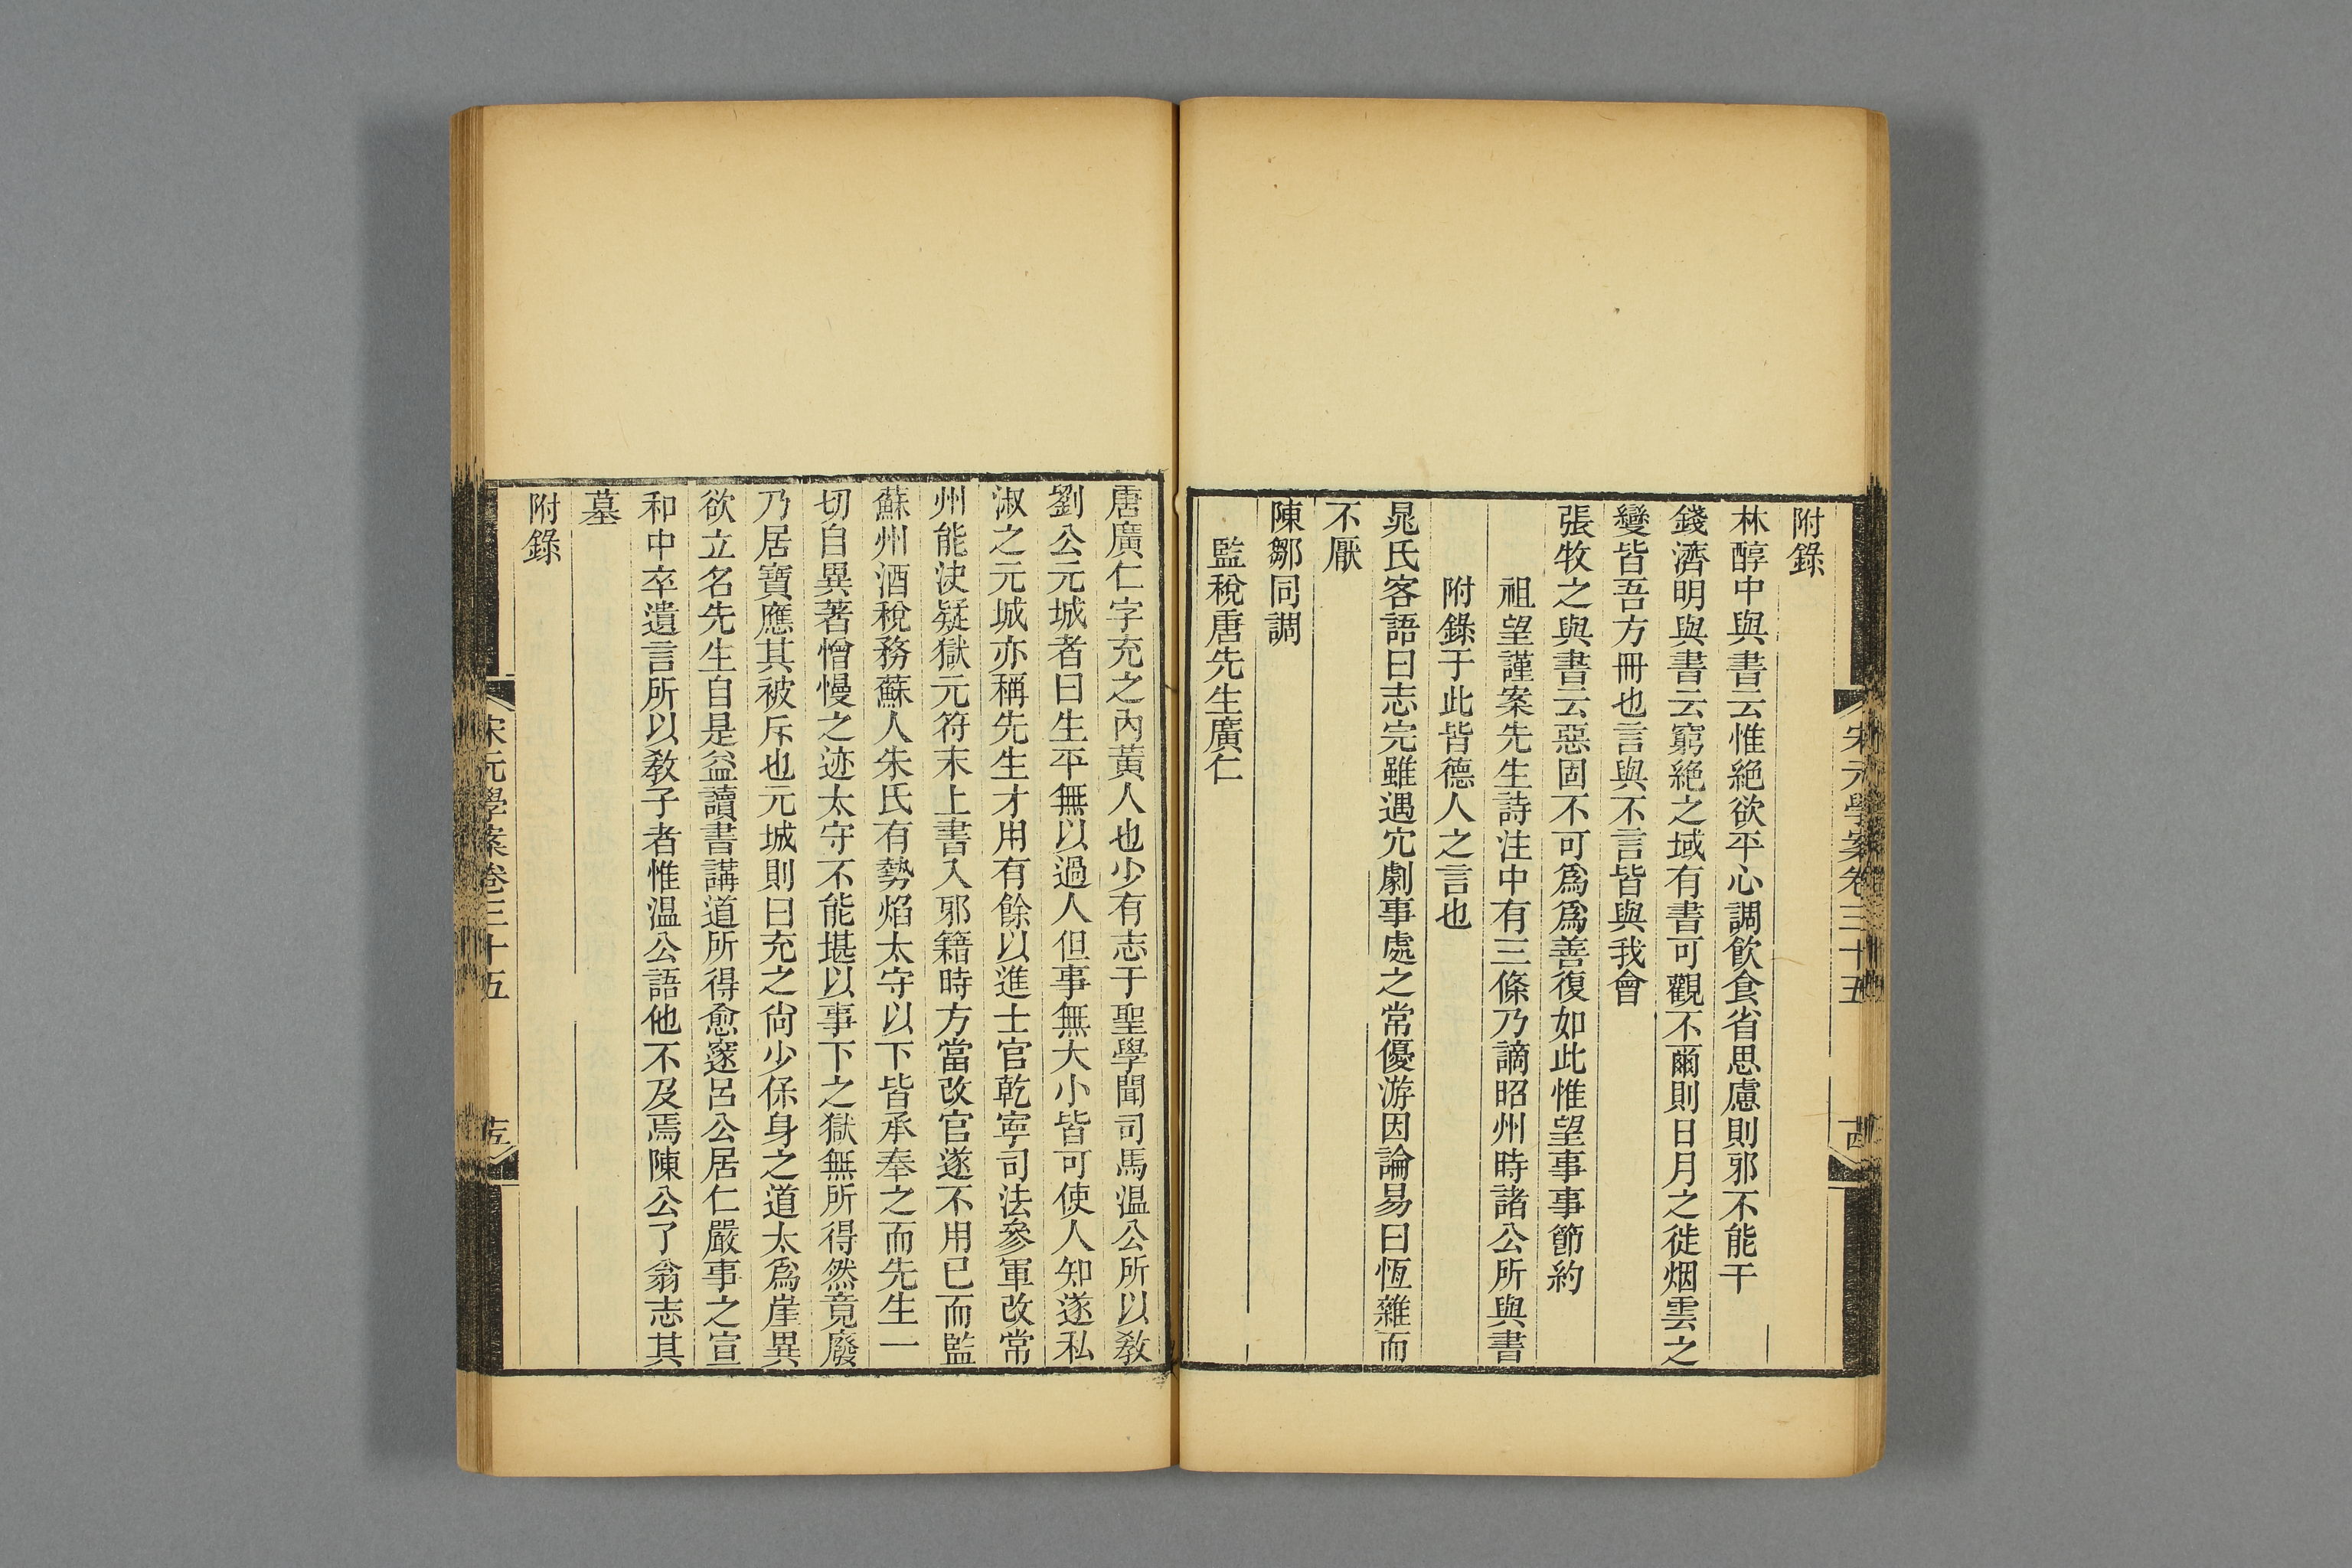 宋元學案卷三十五
附錄
林醇中與書云惟絕欲平心調飲食省思慮則邪不能干
錢濟明與書云窮絕之域有書可觀不爾則日月之徙烟雲之
變皆吾方冊也言與不言皆與我會
張牧之與書云惡固不可爲爲善復如此惟望事事節約
祖望謹案先生詩注中有三條乃謫昭州時諸公所與書
附錄于此皆德人之言也
晁氏客語曰志完雖遇宂劇事處之常優游因論易曰恆雜而
不厭
陳鄒同調
監稅唐先生廣仁
唐廣仁字充之內黃人也少有志于聖學聞司馬温公所以敎
劉公元城者曰生平無以過人但事無大小皆可使人知遂私
淑之元城亦稱先生才用有餘以進士官乾寧司法參軍改常
州能決疑獄元符末上書入邪籍時方當改官遂不用已而監
蘇州酒稅務蘇人朱氏有勢焰太守以下皆承奉之而先生一
切自異著憎慢之迹太守不能堪以事下之獄無所得然竟廢
乃居寶應其被斥也元城則曰充之尙少保身之道太爲崖異
欲立名先生自是益讀書講道所得愈邃呂公居仁嚴事之宣
和中卒遺言所以敎子者惟温公語他不及焉陳公了翁志其
墓
附錄
宋元學案卷三十五